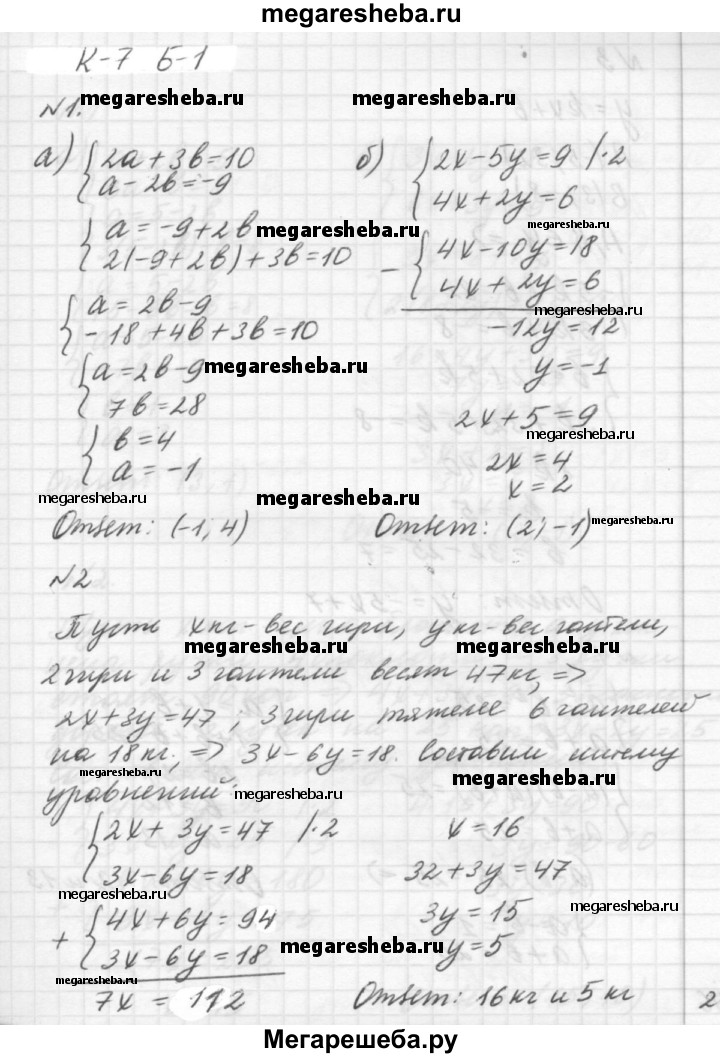 megaresheba.ru
К-7 Б-1
№1.
megaresheba.ru megaresheba.ru
а) {2a+3b=10
{a-2b=-9
{a=-9+2b
megaresheba.ru
{2(-9+2b)+3b=10
{a=2b-9
{-18+4b+3b=10
{a=2b-9
megaresheba.ru
{7b=28
{b=4
{a=-1
megaresheba.ru megaresheba.ru
Ответ: (-1; 4)
б) {2x-5y=9 /·2
{4x+2y=6
megaresheba.ru
- {4x-10y=18
{4x+2y=6
megaresheba.ru
-12y=12
y=-1
2x+5=9
megaresheba.ru
2x=4
x=2
Ответ: (2; -1)
megaresheba.ru
№2
Пусть x кг - вес гири, y кг - вес гантели,
megaresheba.ru megaresheba.ru
2 гири и 3 гантели весят 47 кг, =>
2x+3y=47; 3 гири тяжелее 6 гантелей
на 18 кг, => 3x-6y=18. Составим систему
megaresheba.ru megaresheba.ru
уравнений:
megaresheba.ru
{2x+3y=47 /·2
{3x-6y=18
megaresheba.ru
+ {4x+6y=94
{3x-6y=18
megaresheba.ru
megaresheba.ru
7x = 112
x=16
32+3y=47
3y=15
megaresheba.ru
y=5
Ответ: 16 кг и 5 кг
2
Мегарешеба.ру